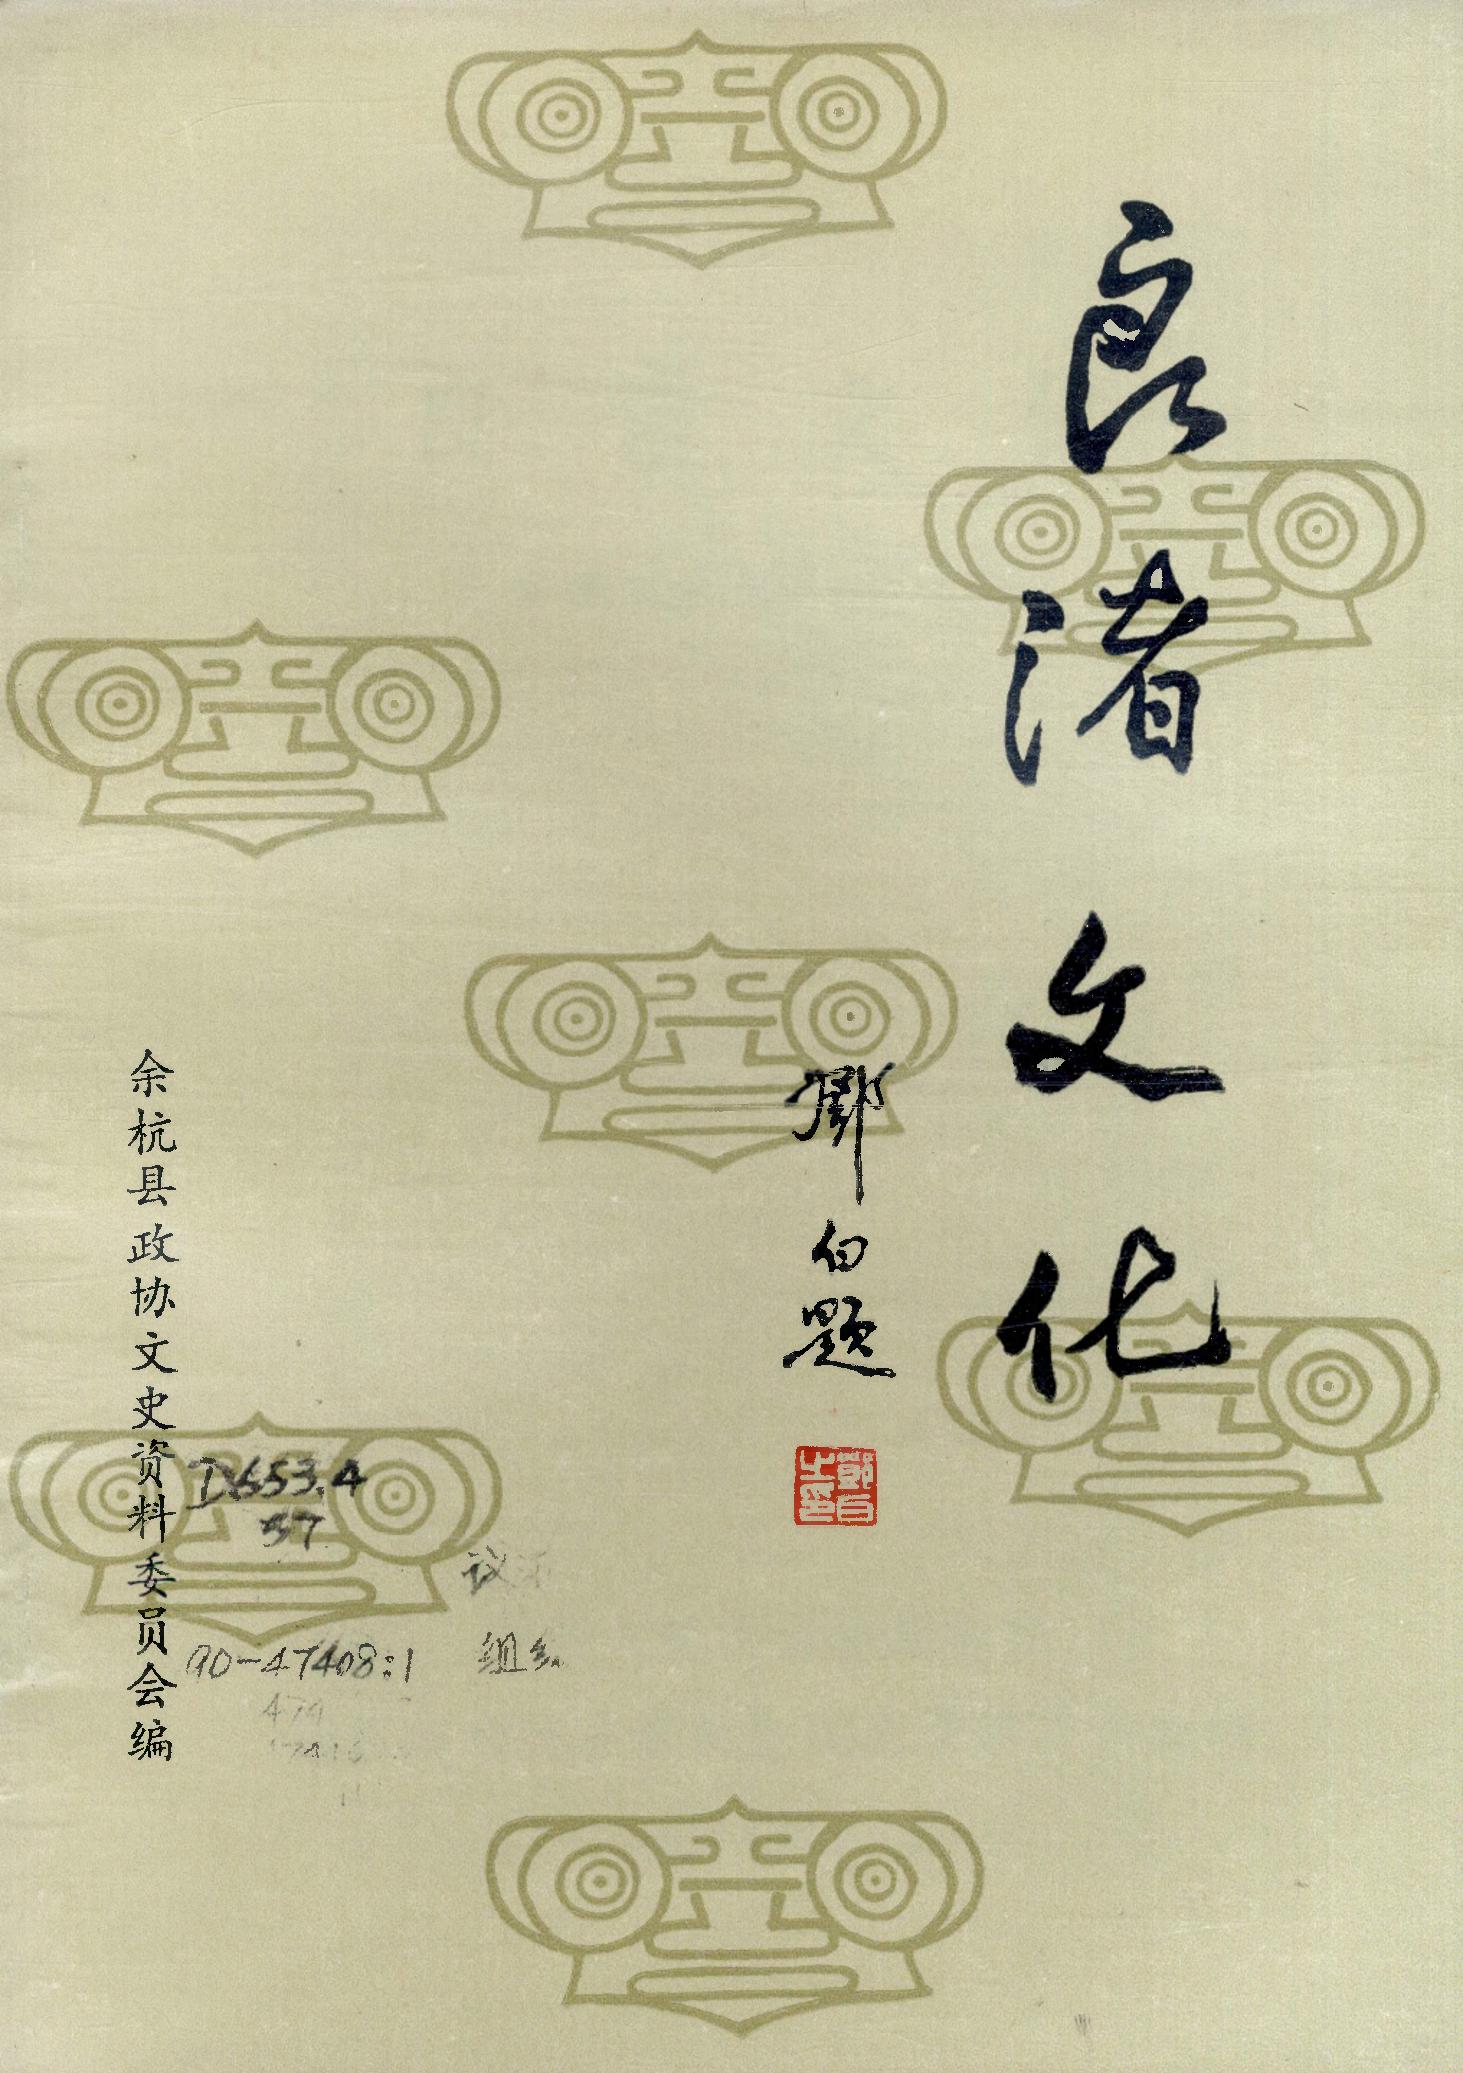 良渚文化
鄧白题
鄧白之印
余杭县政协文史资料委员会编
D653.4
57
议
组
90-47408:1
479